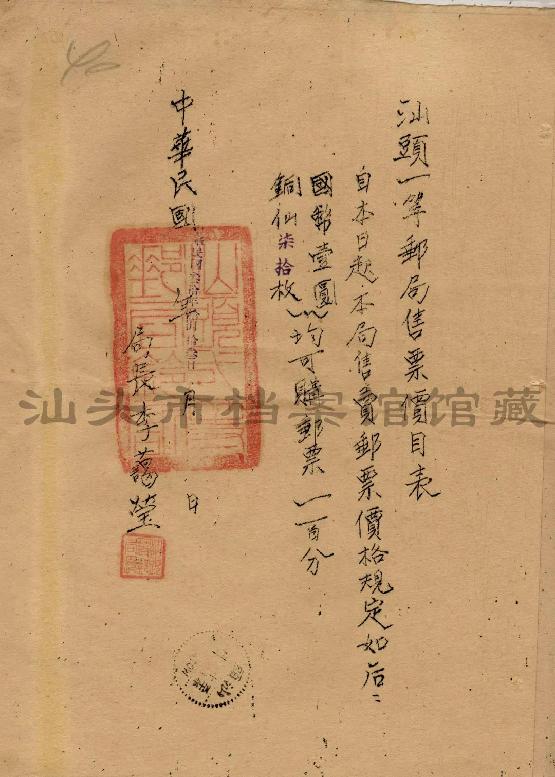 汕頭一等郵局售票價目表
自本日起本局售賣郵票價格規定如后：
國幣壹圓
銅仙柒拾枚
均可購郵票一百分
中華民國 年 月 日
局長李藹瑩
汕头市档案馆馆藏